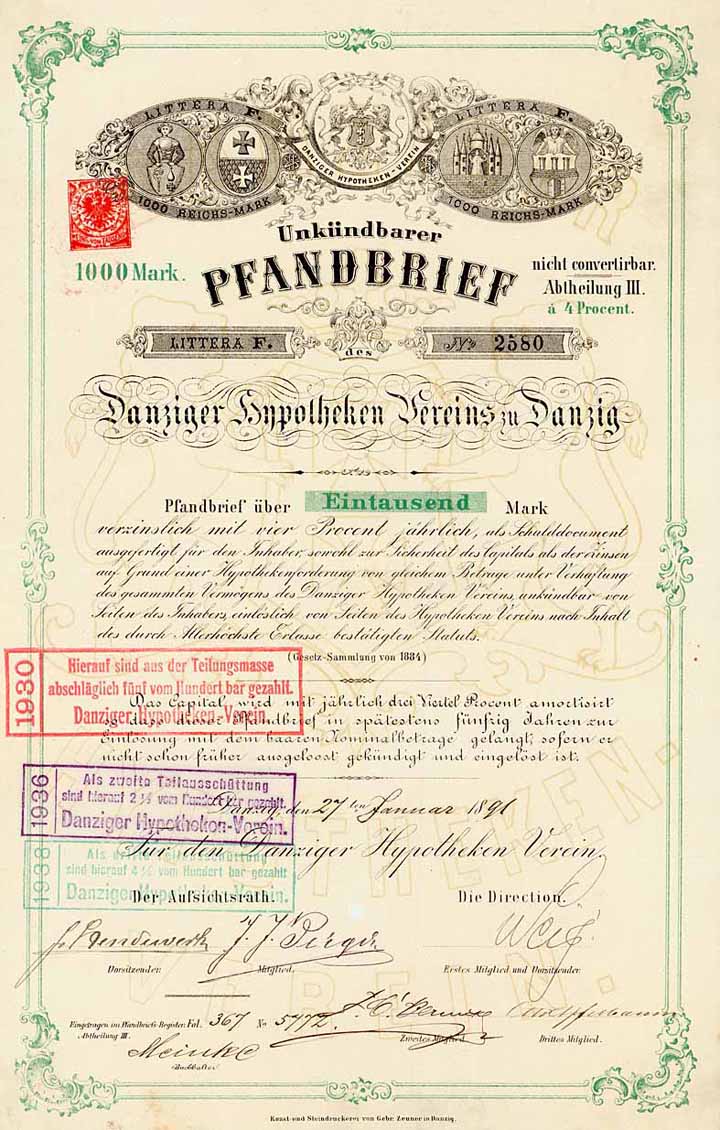 LITTERA F.
1000 REICHS-MARK
DANZIGER HYPOTHEKEN-VEREIN
LITTERA F.
1000 REICHS-MARK
Unkündbarer
1000 Mark.
PFANDBRIEF
nicht convertirbar.
Abtheilung III.
á 4 Procent.
LITTERA F.
des
No 2580
Danziger Hypotheken Vereins zu Danzig
Pfandbrief über Eintausend Mark
verzinslich mit vier Procent jährlich, als Schulddocument
ausgefertigt für den Inhaber, sowohl zur Sicherheit des Capitals als der Zinsen
auf Grund einer Hypothekenforderung von gleichem Betrage unter Verhaftung
des gesammten Vermögens des Danziger Hypotheken Vereins, unkündbar von
Seiten des Inhabers, einlöslich von Seiten des Hypotheken Vereins nach Inhalt
des durch Allerhöchste Erlasse bestätigten Statuts.
(Gesetz-Sammlung von 1884)
1930
Hierauf sind aus der Teilungsmasse
abschläglich fünf vom Hundert bar gezahlt.
Danziger Hypotheken-Verein.
Das Capital, wird mit jährlich drei Viertel Procent amortisirt
so dass dieser Pfandbrief in spätestens fünfzig Jahren zur
Einlösung mit dem baaren Nominalbetrage gelangt, sofern er
nicht schon früher ausgeloost gekündigt und eingelöst ist.
1936
Als zweite Teilausschüttung
sind hierauf 2 ½ vom Hundert bar gezahlt.
Danziger Hypotheken-Verein.
Danzig, den 27ten Januar 1891
Für den Danziger Hypotheken Verein.
1938
Als dritte Teilausschüttung
sind hierauf 4 ½ vom Hundert bar gezahlt
Danziger Hypotheken-Verein.
Der Aufsichtsrath.
Die Direction.
Vorsitzender.
Mitglied.
Erstes Mitglied und Vorsitzender.
Eingetragen im Pfandbriefs-Register Fol. 367 No 5772.
Abtheilung III.
Zweites Mitglied.
Drittes Mitglied.
Meinke
Buchhalter
HYPOTHEKEN.
VEREIN.
Kunst-und Steindruckerei von Gebr. Zeuner in Danzig.